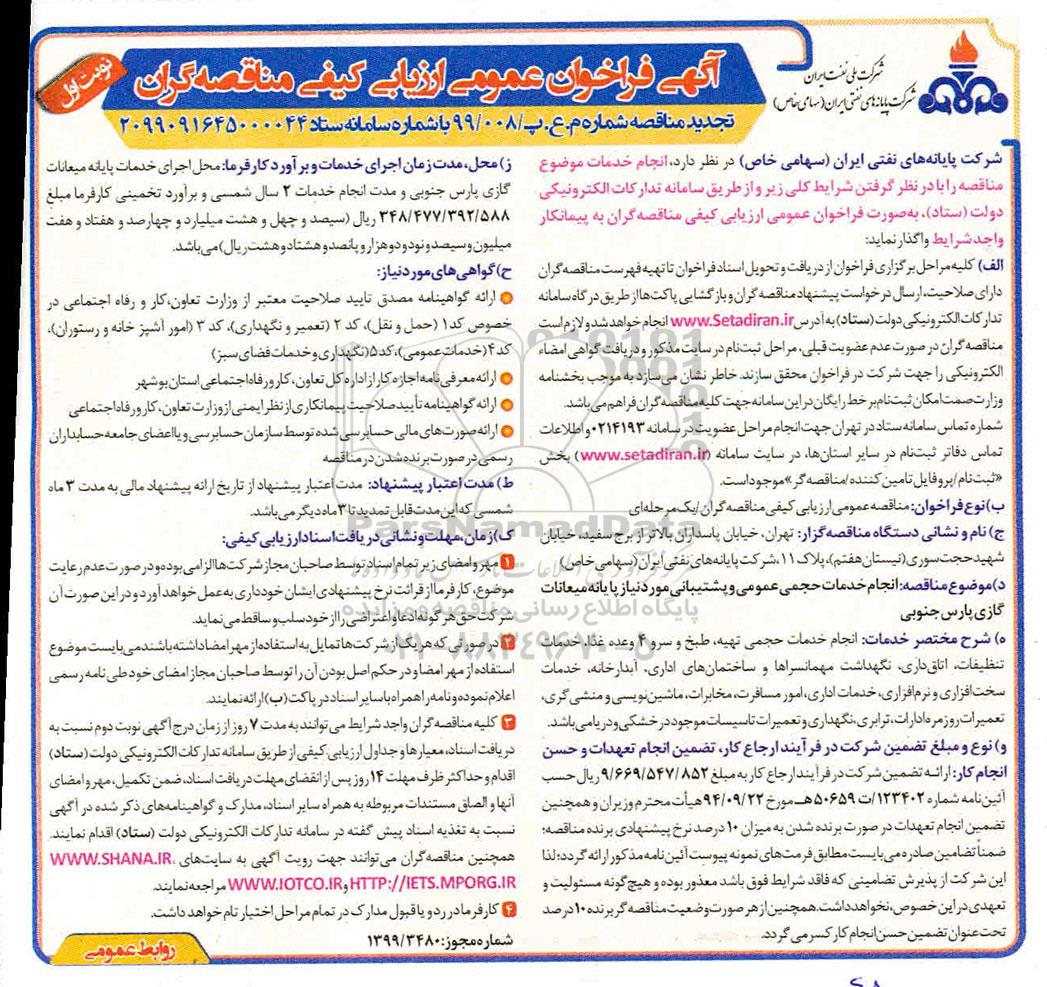 شرکت ملی نفت ایران
شرکت پایانه‌های نفتی ایران (سهامی خاص)
نوبت اول
آگهی فراخوان عمومی ارزیابی کیفی مناقصه‌گران
تجدید مناقصه شماره م.ع.پ/۹۹/۰۰۸ با شماره سامانه ستاد ۲۰۹۹۰۹۱۶۴۵۰۰۰۰۴۴
شرکت پایانه‌های نفتی ایران (سهامی خاص) در نظر دارد، انجام خدمات موضوع
مناقصه را با در نظر گرفتن شرایط کلی زیر و از طریق سامانه تدارکات الکترونیکی
دولت (ستاد)، به‌صورت فراخوان عمومی ارزیابی کیفی مناقصه‌گران به پیمانکار
واجد شرایط واگذار نماید:
الف) کلیه مراحل برگزاری فراخوان از دریافت و تحویل اسناد فراخوان تا تهیه فهرست مناقصه‌گران
دارای صلاحیت، ارسال درخواست پیشنهاد مناقصه‌گران و بازگشایی پاکت‌ها از طریق درگاه سامانه
تدارکات الکترونیکی دولت (ستاد) به آدرس www.Setadiran.ir انجام خواهد شد و لازم است
مناقصه‌گران در صورت عدم عضویت قبلی، مراحل ثبت‌نام در سایت مذکور و دریافت گواهی امضاء
الکترونیکی را جهت شرکت در فراخوان محقق سازند. خاطر نشان می‌سازد به موجب بخشنامه
وزارت صمت امکان ثبت‌نام بر خط رایگان در این سامانه جهت کلیه مناقصه‌گران فراهم می‌باشد.
شماره تماس سامانه ستاد در تهران جهت انجام مراحل عضویت در سامانه ۰۲۱۴۱۹۳ و اطلاعات
تماس دفاتر ثبت‌نام در سایر استان‌ها، در سایت سامانه (www.setadiran.ir) بخش
«ثبت‌نام/پروفایل تامین کننده/مناقصه‌گر» موجود است.
ب) نوع فراخوان: مناقصه عمومی ارزیابی کیفی مناقصه‌گران/یک مرحله‌ای
ج) نام و نشانی دستگاه مناقصه‌گزار: تهران، خیابان پاسداران بالاتر از برج سفید، خیابان
شهید حجت سوری (نیستان هفتم)، پلاک ۱۱، شرکت پایانه‌های نفتی ایران (سهامی خاص)
د) موضوع مناقصه: انجام خدمات حجمی عمومی و پشتیبانی مورد نیاز پایانه میعانات
گازی پارس جنوبی
ه) شرح مختصر خدمات: انجام خدمات حجمی تهیه، طبخ و سرو ۴ وعده غذا، خدمات
تنظیفات، اتاق‌داری، نگهداشت مهمانسراها و ساختمان‌های اداری، آبدارخانه، خدمات
سخت‌افزاری و نرم‌افزاری، خدمات اداری، امور مسافرت، مخابرات، ماشین‌نویسی و منشی‌گری،
تعمیرات روزمره ادارات، ترابری، نگهداری و تعمیرات تاسیسات موجود در خشکی و دریا می‌باشد.
و) نوع و مبلغ تضمین شرکت در فرآیند ارجاع کار، تضمین انجام تعهدات و حسن
انجام کار: ارائه تضمین شرکت در فرآیند ارجاع کار به مبلغ ۹/۶۶۹/۵۴۷/۸۵۲ ریال حسب
آئین‌نامه شماره ۱۲۳۴۰۲/ت ۵۰۶۵۹هـ مورخ ۹۴/۰۹/۲۲ هیأت محترم وزیران و همچنین
تضمین انجام تعهدات در صورت برنده شدن به میزان ۱۰ درصد نرخ پیشنهادی برنده مناقصه؛
ضمناً تضامین صادره می‌بایست مطابق فرمت‌های نمونه پیوست آئین‌نامه مذکور ارائه گردد؛ لذا
این شرکت از پذیرش تضامینی که فاقد شرایط فوق باشد معذور بوده و هیچ‌گونه مسئولیت و
تعهدی در این خصوص، نخواهد داشت. همچنین از هر صورت وضعیت مناقصه‌گر برنده ۱۰ درصد
تحت عنوان تضمین حسن انجام کار کسر می‌گردد.
ز) محل، مدت زمان اجرای خدمات و برآورد کارفرما: محل اجرای خدمات پایانه میعانات
گازی پارس جنوبی و مدت انجام خدمات ۲ سال شمسی و برآورد تخمینی کارفرما مبلغ
۳۴۸/۴۷۷/۳۹۲/۵۸۸ ریال (سیصد و چهل و هشت میلیارد و چهارصد و هفتاد و هفت
میلیون و سیصد و نود و دو هزار و پانصد و هشتاد و هشت ریال) می‌باشد.
ح) گواهی‌های مورد نیاز:
ارائه گواهینامه مصدق تایید صلاحیت معتبر از وزارت تعاون، کار و رفاه اجتماعی در
خصوص کد۱ (حمل و نقل)، کد ۲ (تعمیر و نگهداری)، کد ۳ (امور آشپز خانه و رستوران)،
کد ۴ (خدمات عمومی)، کد ۵ (نگهداری و خدمات فضای سبز)
ارائه معرفی‌نامه اجازه کار از اداره کل تعاون، کار و رفاه اجتماعی استان بوشهر
ارائه گواهینامه تأیید صلاحیت پیمانکاری از نظر ایمنی از وزارت تعاون، کار و رفاه اجتماعی
ارائه صورت‌های مالی حسابرسی شده توسط سازمان حسابرسی و یا اعضای جامعه حسابداران
رسمی در صورت برنده شدن در مناقصه
ط) مدت اعتبار پیشنهاد: مدت اعتبار پیشنهاد از تاریخ ارائه پیشنهاد مالی به مدت ۳ ماه
شمسی که این مدت قابل تمدید تا ۳ ماه دیگر می‌باشد.
ک) زمان، مهلت و نشانی دریافت اسناد ارزیابی کیفی:
۱ مهر و امضای زیر تمام اسناد توسط صاحبان مجاز شرکت‌ها الزامی بوده و در صورت عدم رعایت
موضوع، کارفرما از قرائت نرخ پیشنهادی ایشان خودداری به عمل خواهد آورد و در این صورت آن
شرکت حق هر گونه ادعا و اعتراضی را از خود سلب و ساقط می‌نماید.
۲ در صورتی که هر یک از شرکت‌ها تمایل به استفاده از مهر امضا داشته باشند می‌بایست موضوع
استفاده از مهر امضا و در حکم اصل بودن آن را توسط صاحبان مجاز امضای خود طی نامه رسمی
اعلام نموده و نامه را همراه با سایر اسناد در پاکت (ب) ارائه نمایند.
۳ کلیه مناقصه‌گران واجد شرایط می‌توانند به مدت ۷ روز از زمان درج آگهی نوبت دوم نسبت به
دریافت اسناد، معیارها و جداول ارزیابی کیفی از طریق سامانه تدارکات الکترونیکی دولت (ستاد)
اقدام و حداکثر ظرف مهلت ۱۴ روز پس از انقضای مهلت دریافت اسناد، ضمن تکمیل، مهر و امضای
آنها و الصاق مستندات مربوطه به همراه سایر اسناد، مدارک و گواهینامه‌های ذکر شده در آگهی
نسبت به تغذیه اسناد پیش گفته در سامانه تدارکات الکترونیکی دولت (ستاد) اقدام نمایند.
همچنین مناقصه‌گران می‌توانند جهت رویت آگهی به سایت‌های WWW.SHANA.IR،
HTTP://IETS.MPORG.IR و WWW.IOTCO.IR مراجعه نمایند.
۴ کارفرما در رد و یا قبول مدارک در تمام مراحل اختیار تام خواهد داشت.
شماره مجوز: ۱۳۹۹/۳۴۸۰
روابط عمومی
ParsNamadData
پایگاه اطلاع رسانی مناقصه و مزایده